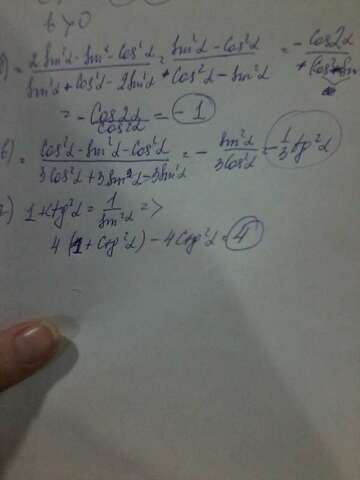 б > 0
= \frac{2sin²α - sin²α - cos²α}{sin²α + cos²α - 2sin²α} = \frac{sin²α - cos²α}{cos²α - sin²α} = \frac{-cos2α}{}
= -\frac{cos2α}{cos2α} = -1
в) = \frac{cos²α - sin²α - cos²α}{3cos²α + 3sin²α - 3sin²α} = -\frac{sin²α}{3cos²α} = -\frac{1}{3}tg²α
г) 1 + ctg²α = \frac{1}{sin²α} =>
4(1 + ctg²α) - 4ctg²α = 4